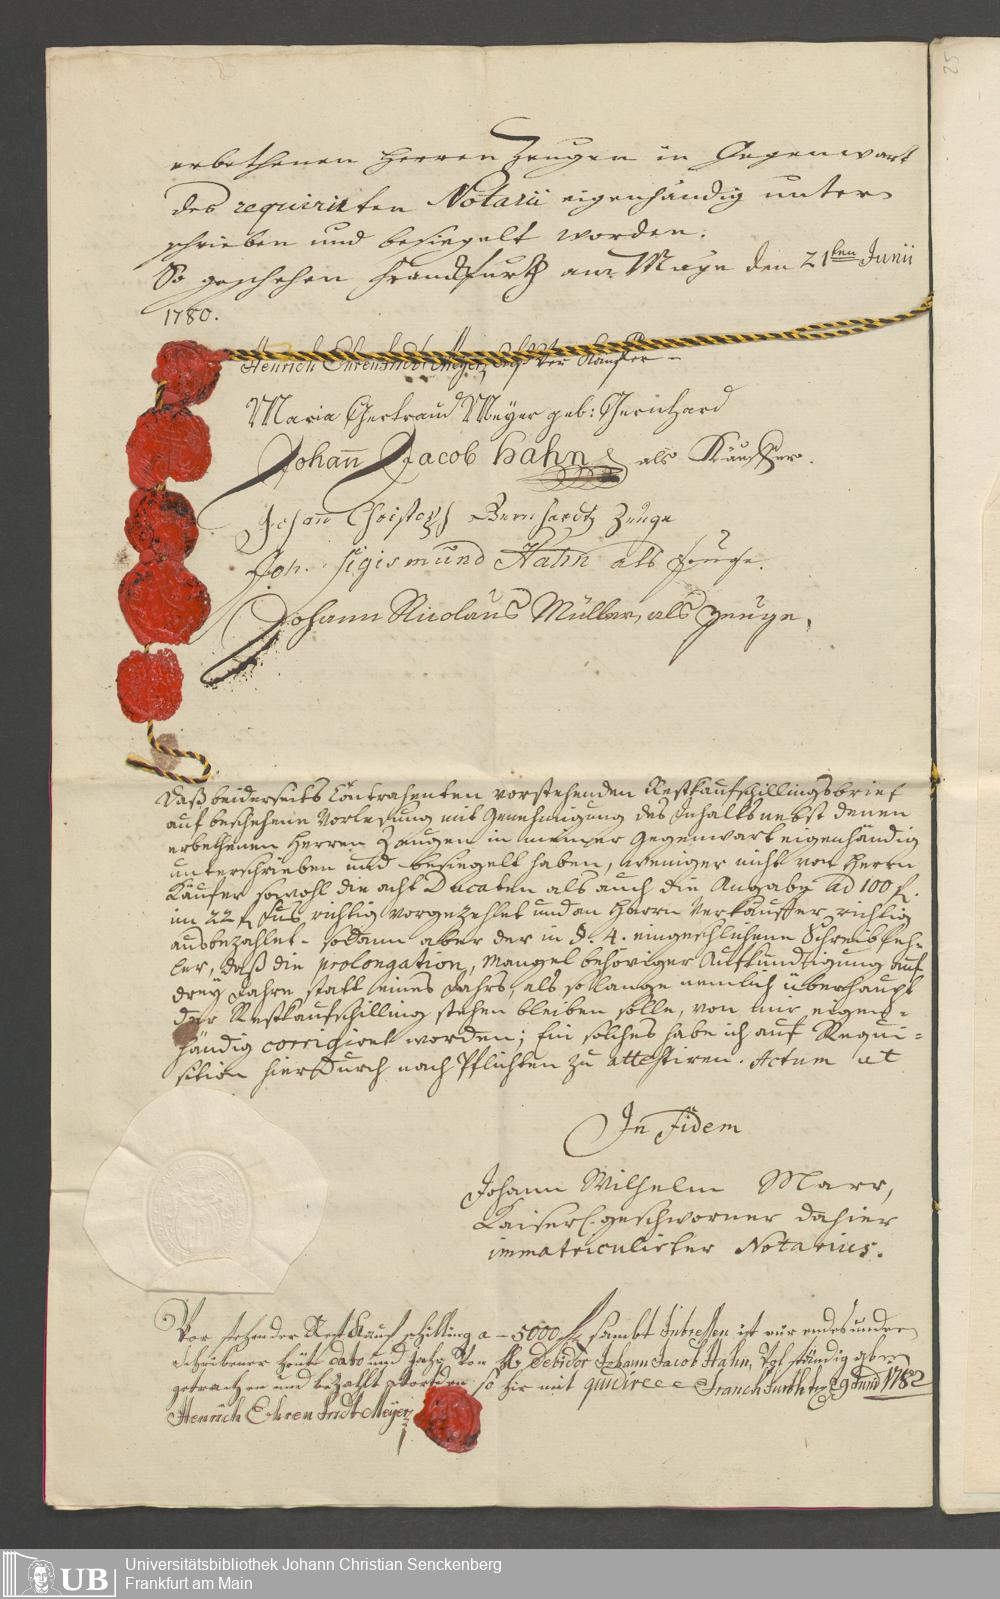 erbethenen Herren Zeugen in Gegenwart
des requirirten Notarii eigenhändig unter
schrieben und besiegelt worden.
So geschehen Franckfurth am Mayn den 21ten Junii
1780.
Henrich Ehrenfridt Meyer, Alß Ver Kauffer
Maria Gertraud Meyer geb: Gerichard
Johañ Jacob Hahn als Käuffer.
Johañ Christoph Bernhardt Zeuge
Joh. Sigismund Hahn als Zeuge.
Johann Nicolaus Müller, als Zeuge,
Daß beiderseits Contrahenten vorstehenden Restkaufschillingsbrief
auf beschehene Vorlesung mit Genehmigung des Inhalts nebst denen
erbethenen Herren Zeugen in meiner Gegenwart eigenhändig
unterschrieben und besiegelt haben, weniger nicht von Herrn
Käufer sowohl die acht Ducaten als auch die Angabe ad 100 f.
im 22 f Fus richtig vorgezehlet und an Herrn Verkäuffer richtig
ausbezahlet - sodann aber der in §. 4. eingeschlichene Schreibfeh-
ler, daß die prolongation, Mangel behöriger Aufkündigung auf
drey Jahre statt eines Jahrs, als so lange nemlich überhaupt
der Restkaufschilling stehen bleiben solle, von mir eigen-
händig corrigiret worden; Ein solches habe ich auf Requi-
sition hierdurch nach Pflichten zu attestiren. Actum ut
In Fidem
Johann Wilhelm Marr,
Kaiserl. geschworner dahier
immatriculirter Notarius.
Vor stehender Rest Kauf schilling a - 5000 f sambt Intressen ist mir endes under
schribener heute dato und Jahr Von H Debidor Johann Jacob Hahn, Vol ständig aben
getrachen und bezahlt Worden so hir mit quidire Franckfurth d 29 Junii 1782
Henrich Ehrenfridt Meyer
25
UB
Universitätsbibliothek Johann Christian Senckenberg
Frankfurt am Main